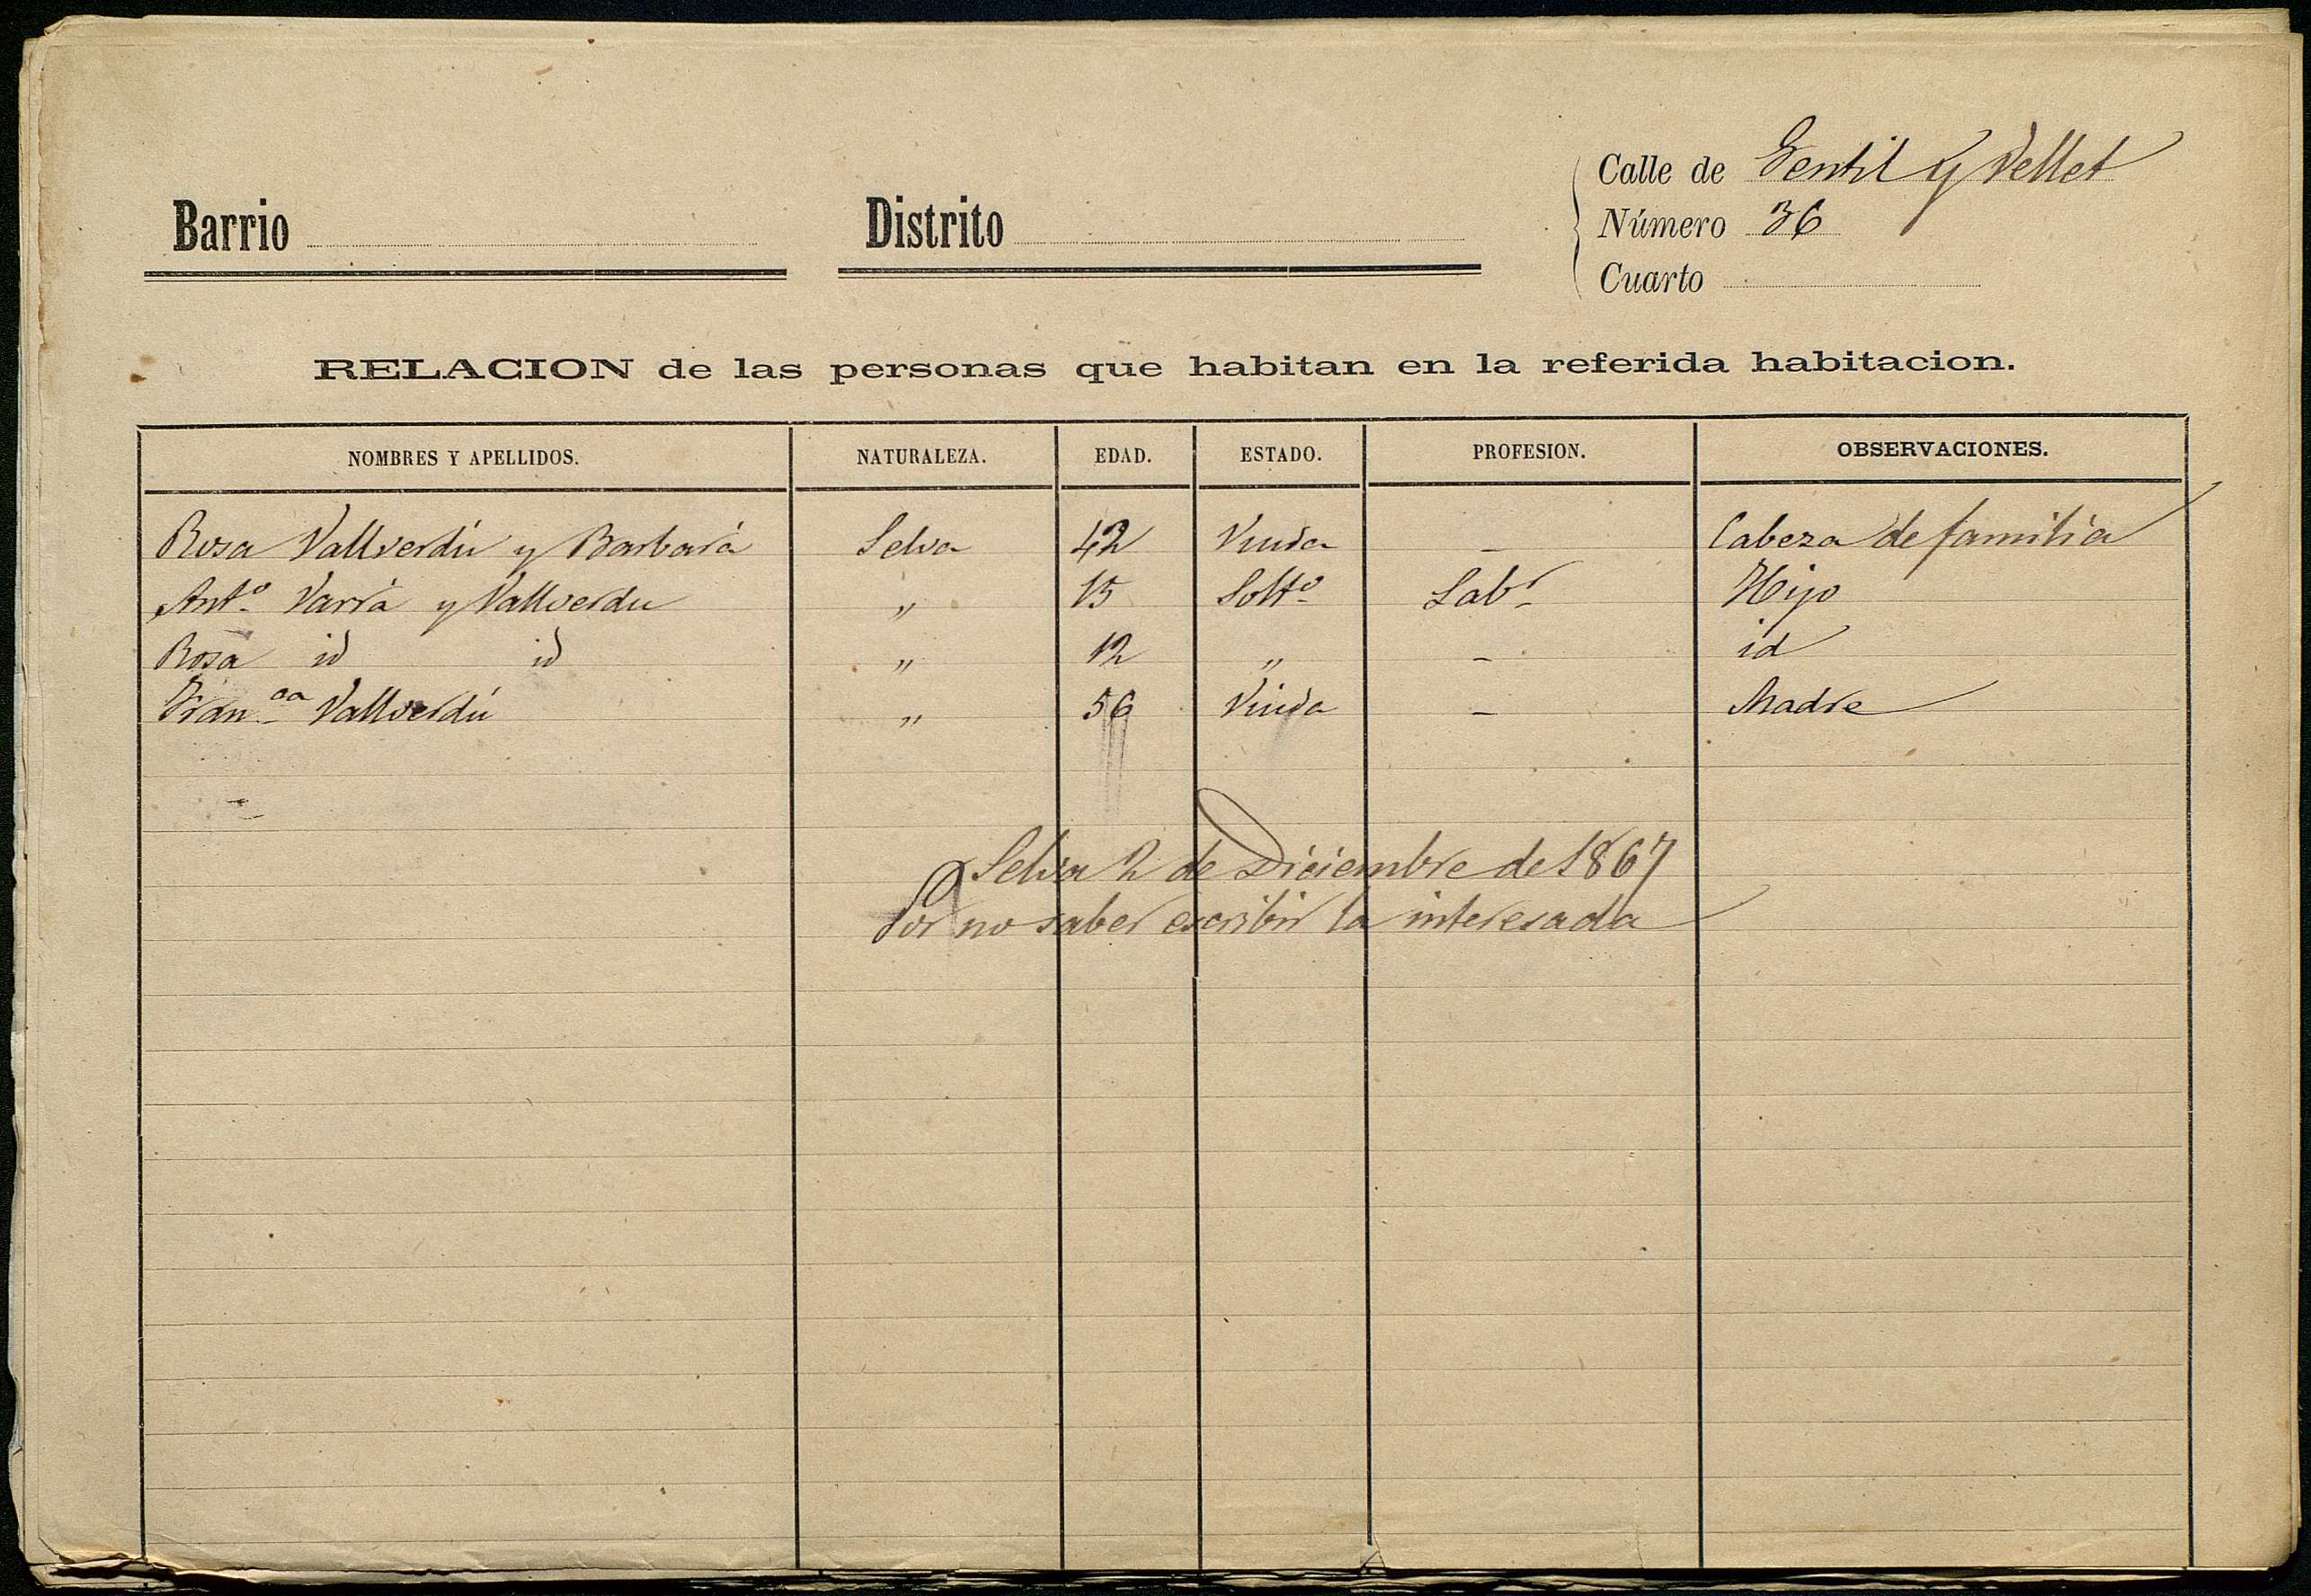 Calle de Gentil y Vellet
Barrio Distrito Número 36
Cuarto
RELACION de las personas que habitan en la referida habitacion.
NOMBRES Y APELLIDOS. NATURALEZA. EDAD. ESTADO. PROFESION. OBSERVACIONES.
Rosa Vallverdú y Barbará Selva 42 Viuda - Cabeza de familia
Ant.º Varrá y Vallverdu " 15 Solt.º Lab.r Hijo
Rosa id id " 12 " - id
Fran.ca Vallverdú " 56 Viuda - Madre
Selva 2 de Diciembre de 1867
Por no saber escribir la interesada